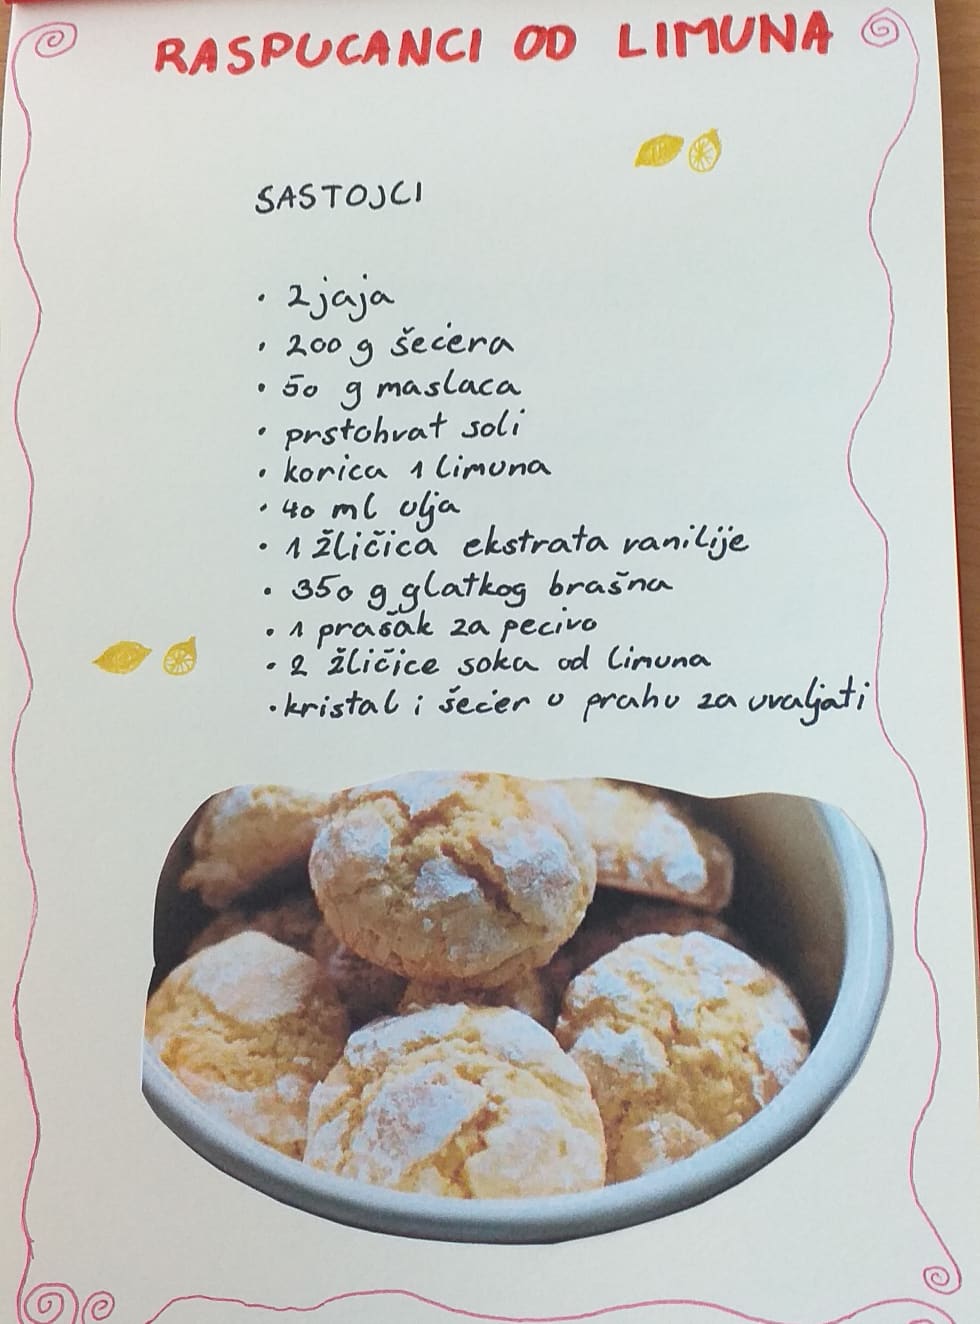 RASPUCANCI OD LIMUNA
SASTOJCI
• 2 jaja
• 200 g šećera
• 50 g maslaca
• prstohvat soli
• korica 1 limuna
• 40 ml olja
• 1 žličica ekstrata vanilije
• 350 g glatkog brašna
• 1 prašak za pecivo
• 2 žličice soka od limuna
• kristal i šećer u prahu za uvaljati